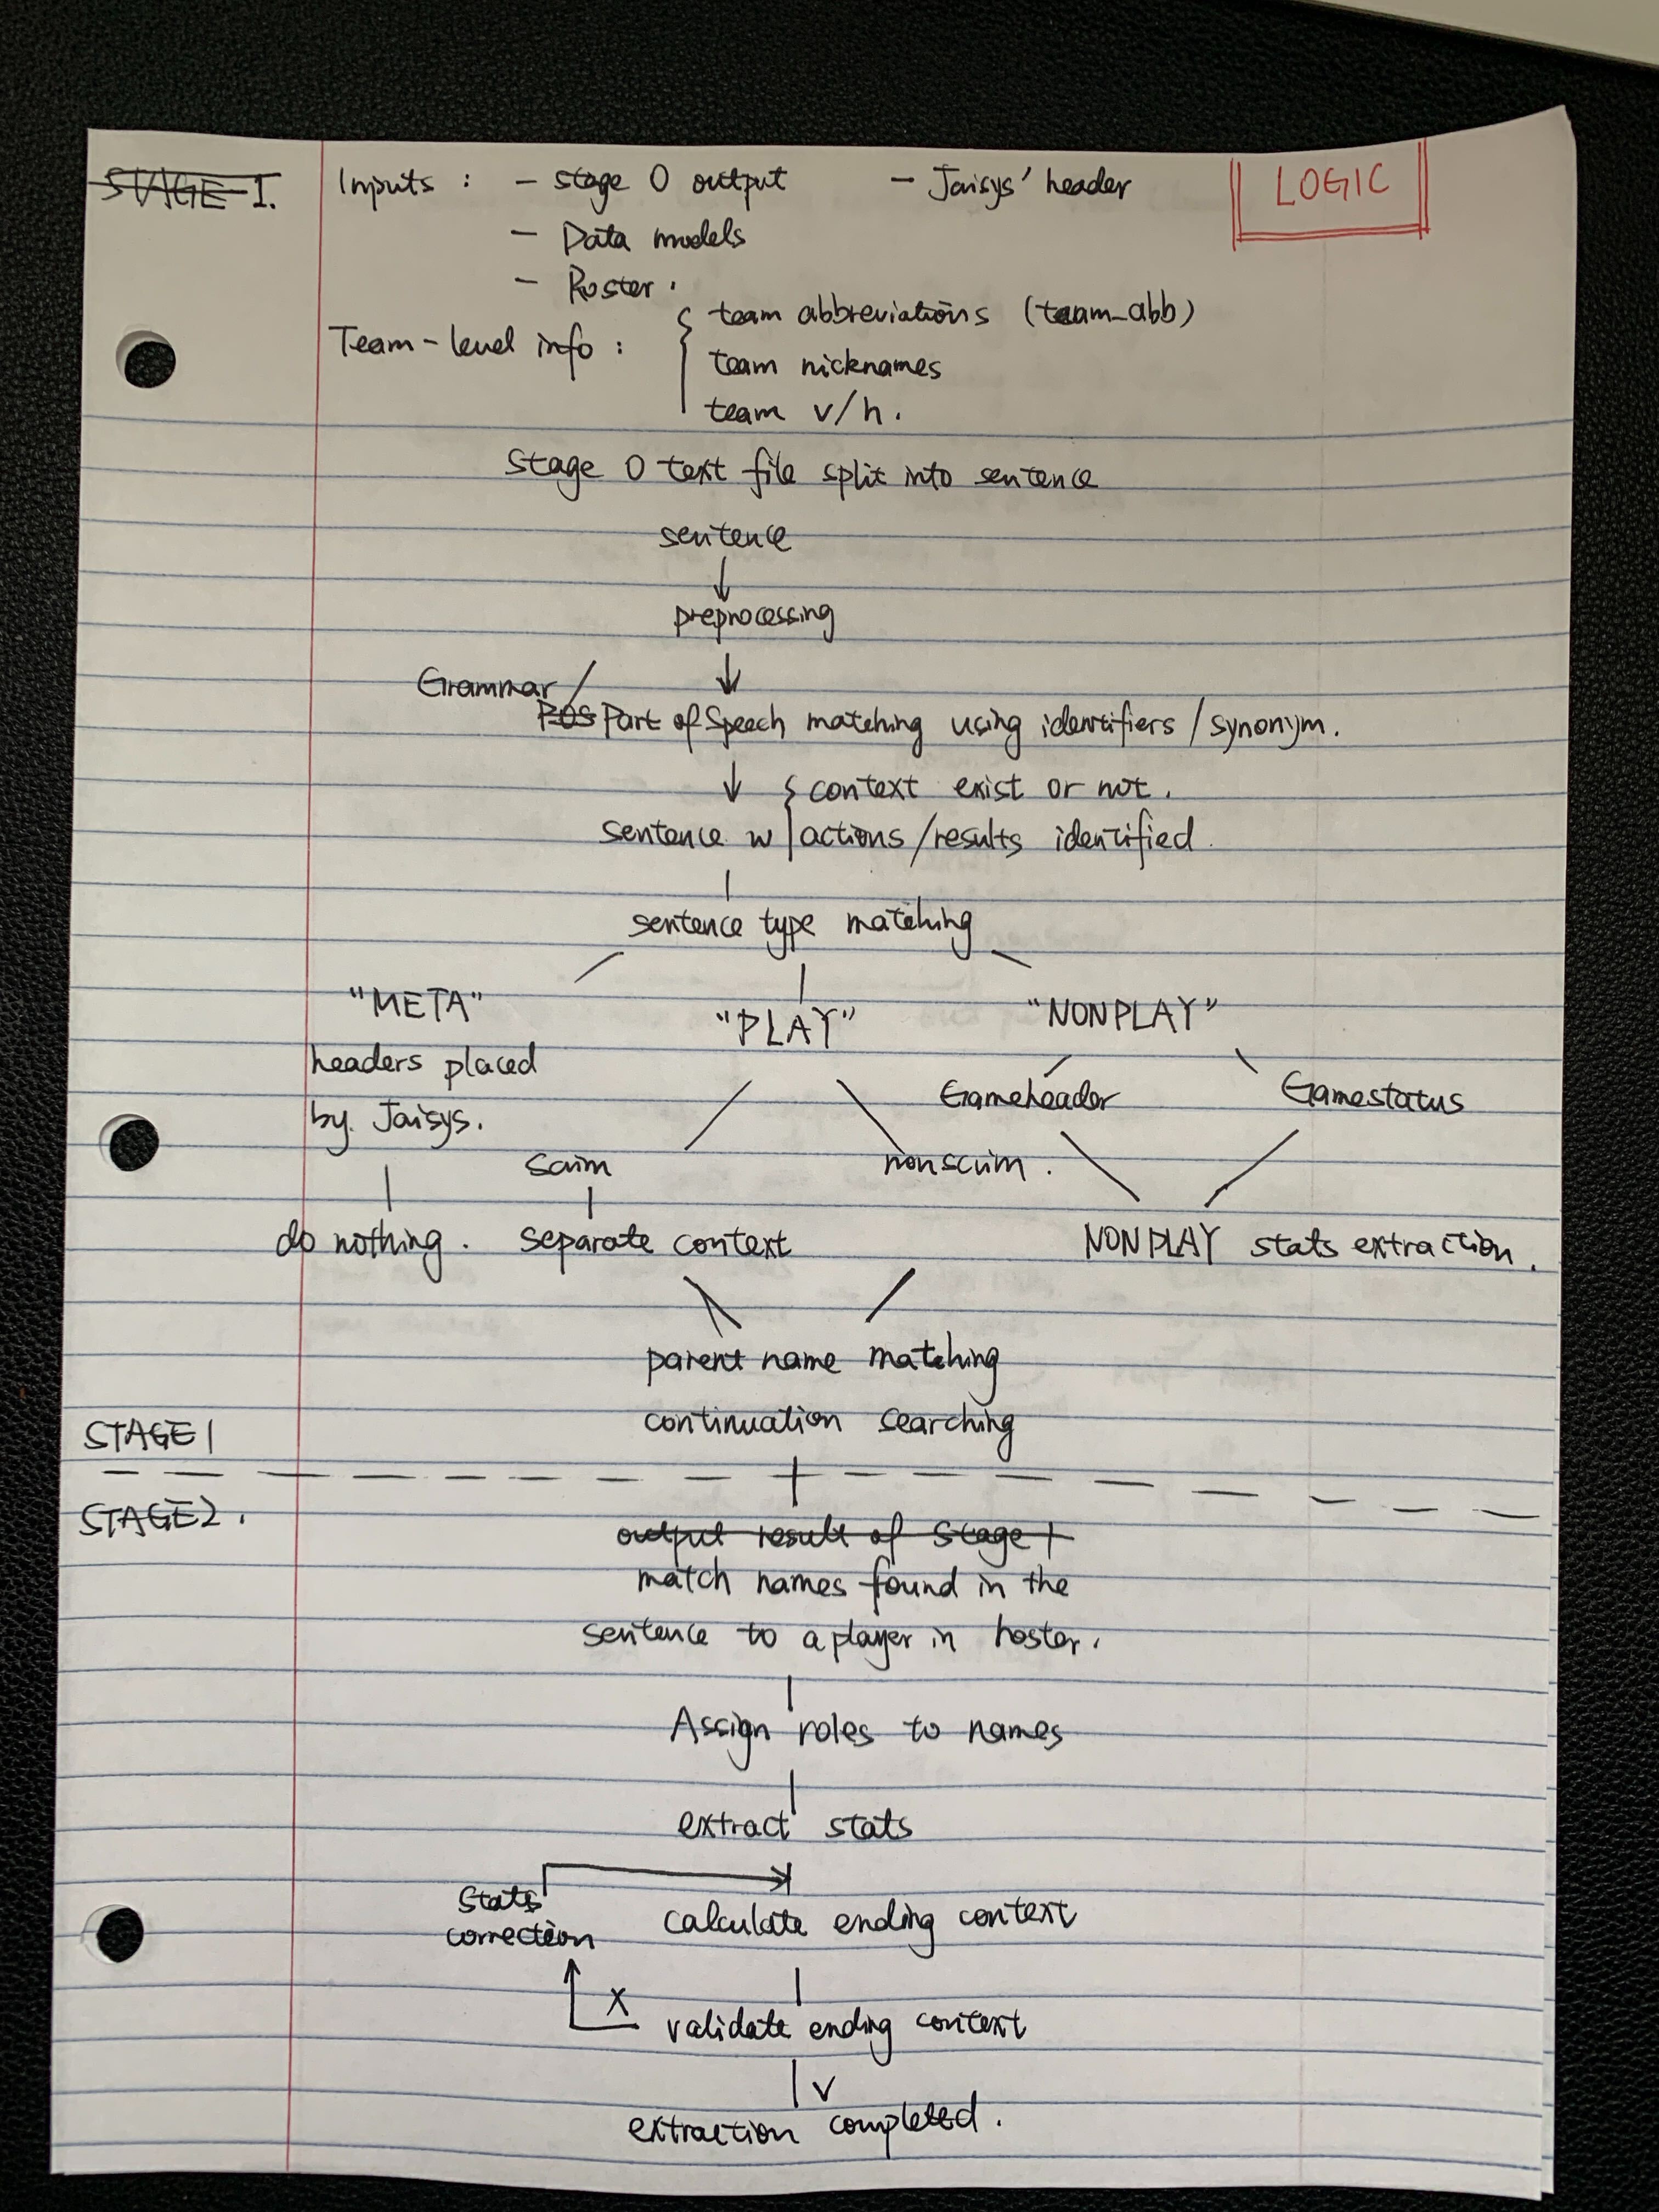 STAGE 1.
Inputs : - stage 0 output - Jaisys' header
LOGIC
- Data models
- Roster.
Team-level info : { team abbreviations (team_abb)
team nicknames
team v/h.
Stage 0 text file split into sentence
sentence
↓
preprocessing
↓
Grammar /
POS Part of Speech matching using identifiers / synonym.
↓ { context exist or not.
sentence w actions/results identified.
sentence type matching
"META" "PLAY" "NONPLAY"
headers placed
by Jaisys.
Gameheader Gamestatus
scrim nonscrim.
do nothing. separate context NONPLAY stats extraction.
parent name matching
continuation searching
STAGE 1
STAGE 2.
output result of Stage 1
match names found in the
sentence to a player in hoster.
Assign roles to names
extract stats
stats
correction
calculate ending context
X
validate ending context
V
extraction completed.